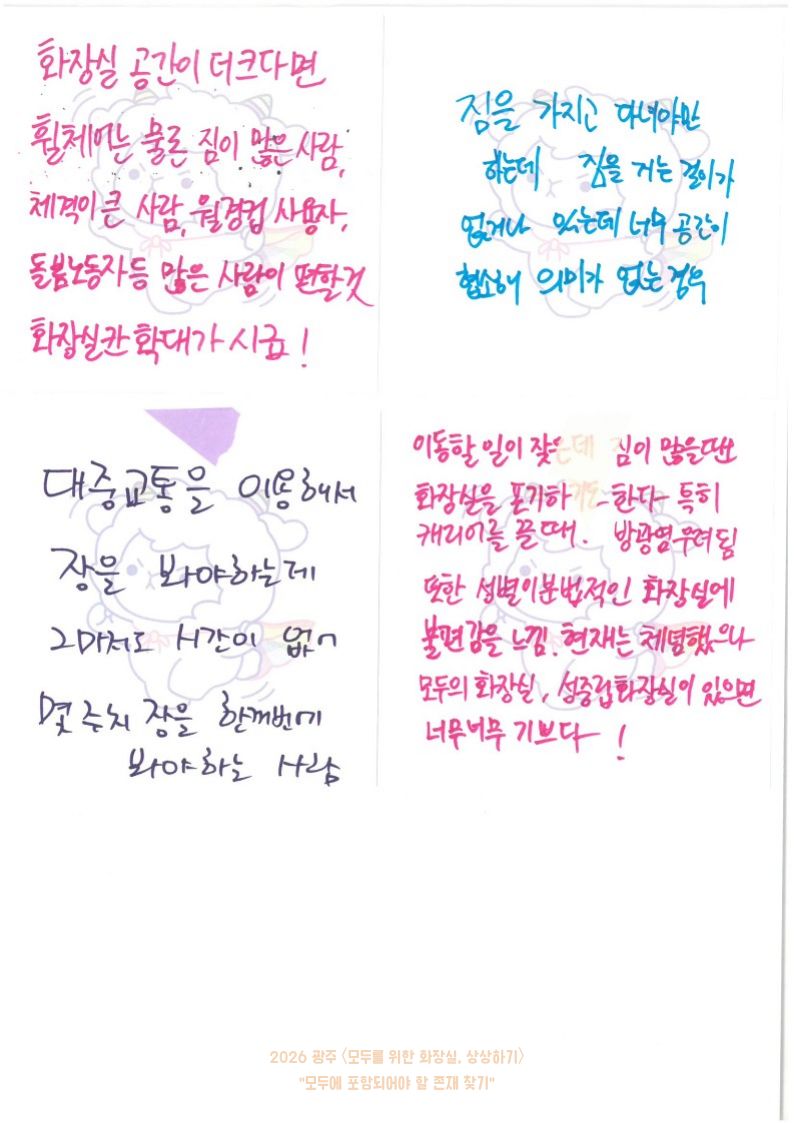 화장실 공간이 더크다면
휠체어는 물론 짐이 많은 사람,
체격이 큰 사람, 월경컵 사용자,
돌봄노동자등 많은 사람이 편할것
화장실칸 확대가 시급!
짐을 가지고 다녀야만
하는데 짐을 거는 걸이가
없거나 있는데 너무 공간이
협소해 의미가 없는 경우
대중교통을 이용해서
장을 봐야하는데
그마저도 시간이 없어
몇 주치 장을 한꺼번에
봐야하는 사람
이동할 일이 잦은데 짐이 많을때
화장실을 포기하기도 한다 특히
캐리어를 끌 때. 방광염우려됨
또한 성별이분법적인 화장실에
불편감을 느낌. 현재는 체념했으나
모두의 화장실, 성중립화장실이 있으면
너무너무 기쁘다 !
2026 광주 <모두를 위한 화장실, 상상하기>
"모두에 포함되어야 할 존재 찾기"